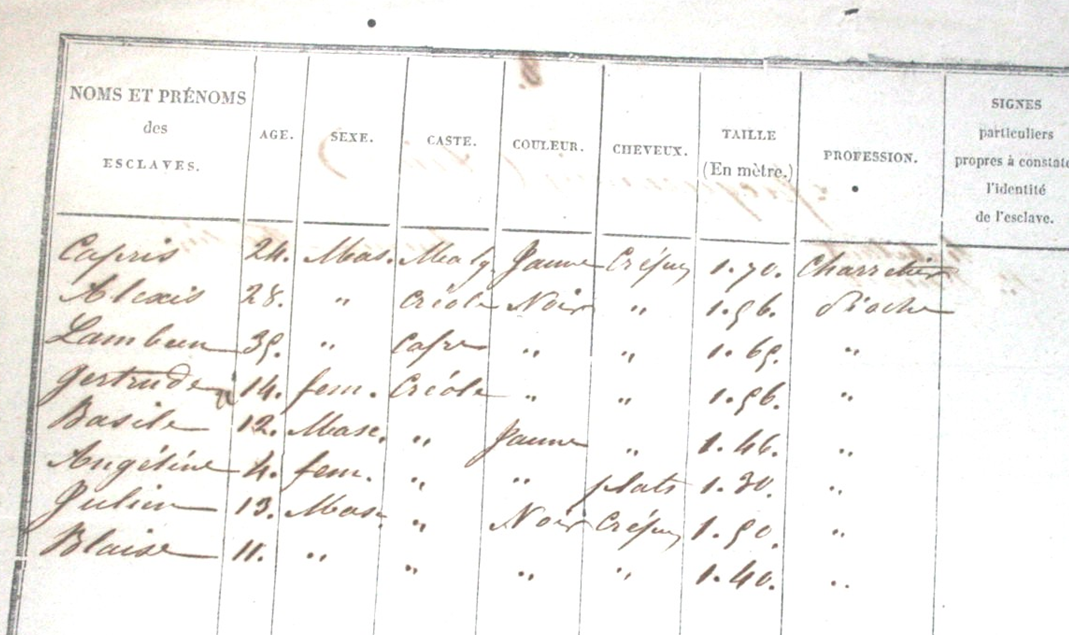 NOMS ET PRÉNOMS des ESCLAVES. AGE. SEXE. CASTE. COULEUR. CHEVEUX. TAILLE (En mètre.) PROFESSION. SIGNES particuliers propres à constate l'identité de l'esclave.
Capris 24. Mas. Malg. Jaune Crépus 1.70. Charretier
Alexis 28. " Créole Noir " 1.56. Pioche
39. " Cafre " " 1.65. "
Gertrude 14. fem. Créole " " 1.56. "
Basile 12. Masc. " Jaune " 1.46. "
Angéline 4. fem. " " plats 1.30. "
Julien 13. Masc. " Noir Crépus 1.50. "
Blaise 11. " " " " 1.40. "